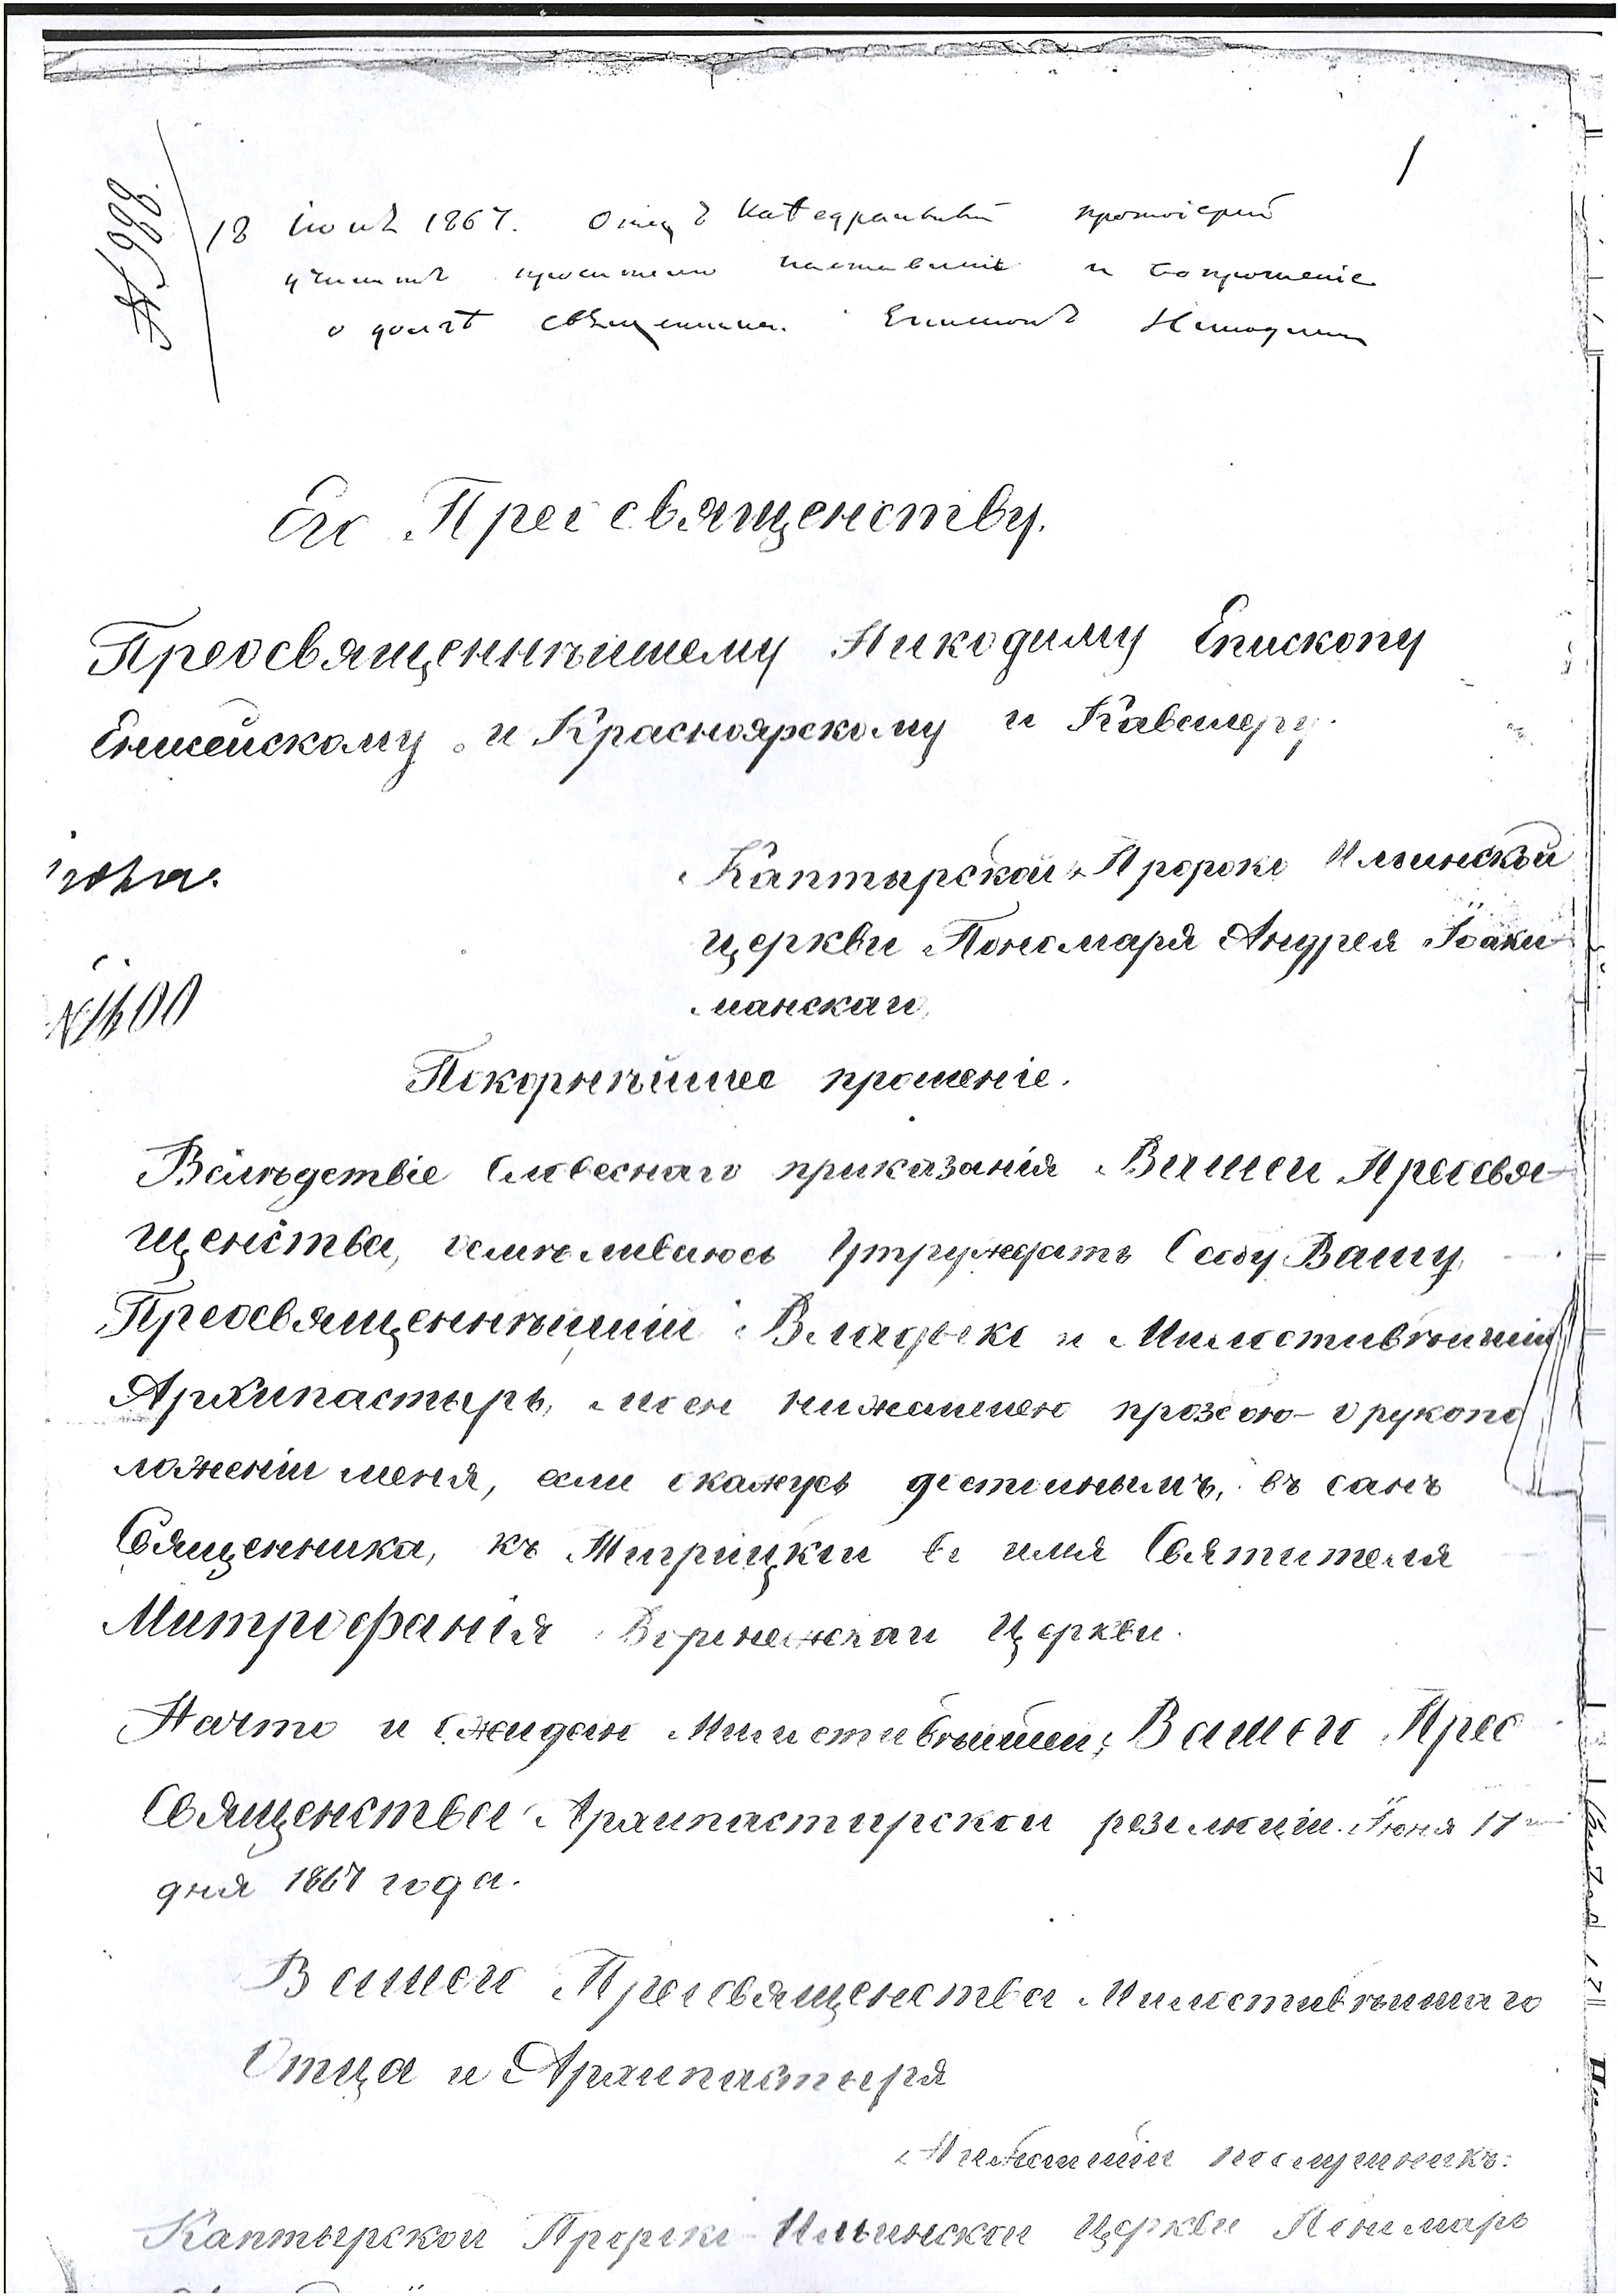 № 988.
18 Іюня 1867. Отецъ Каѳедральный протоіерей
учинитъ просителю наставленіе и вопрошеніе
о долгѣ священника. Епископъ Никодимъ
1
Его Преосвященству.
Преосвященнѣйшему Никодиму Епископу
Енисейскому и Красноярскому и Кавалеру.
Каптырской Пророко Ильинской
церкви Пономаря Андрея Іоаки
манскаго,
№ 1400
Покорнѣйшее прошеніе.
Вслѣдствіе Словеснаго приказанія Вашего Преосвя-
щенства, осмѣливаюсь Утруждать Особу Вашу,
Преосвященнѣйшій Владыко и Милостивѣйшій
Архипастырь, моею нижайшею прозбою - о рукопо
ложеніи меня, если окажусь достойнымъ, въ санъ
Священника, къ Тигрицкой во имя Святителя
Митрофанія Воронежскаго Церкви.
На что и ожидаю Милостивѣйшей, Вашего Прео
Священства Архипастырской резолюціи. Іюня 17го
дня 1867 года.
Вашего Преосвященства Милостивѣйшаго
Отца и Архипастыря
Нижайшій послушникъ:
Каптырской Пророко-Ильинской Церкви Пономарь